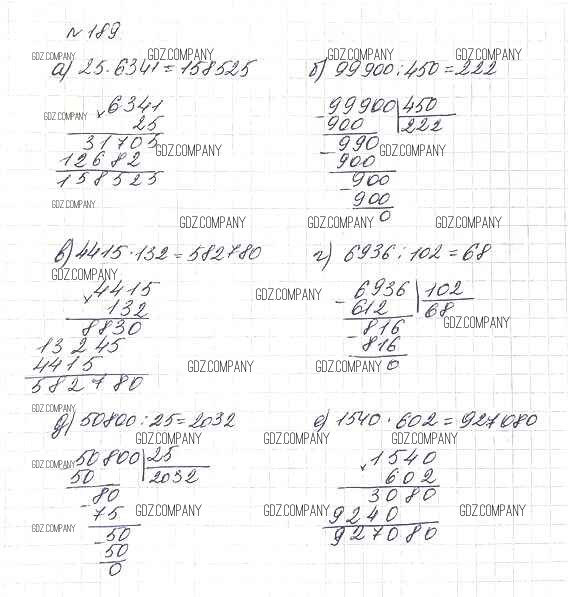 № 189
GDZ.COMPANY GDZ.COMPANY GDZ.COMPANY GDZ.COMPANY
а) 25·6341=158525 б) 99900:450=222
×6341
25
31705
12682
158525
-99900|450
900 222
-990
900
-900
900
0
GDZ.COMPANY
GDZ.COMPANY GDZ.COMPANY
GDZ.COMPANY
GDZ.COMPANY GDZ.COMPANY GDZ.COMPANY
в) 4415·132=582780 г) 6936:102=68
GDZ.COMPANY
×4415
132
8830
13245
4415
582780
GDZ.COMPANY
-6936|102
612 68
-816
816
0
GDZ.COMPANY
GDZ.COMPANY GDZ.COMPANY
GDZ.COMPANY
д) 50800:25=2032 е) 1540·602=927080
GDZ.COMPANY GDZ.COMPANY
50800|25
50 2032
-80
75
-50
50
0
×1540
602
3080
9240
927080
GDZ.COMPANY GDZ.COMPANY GDZ.COMPANY
GDZ.COMPANY GDZ.COMPANY GDZ.COMPANY GDZ.COMPANY